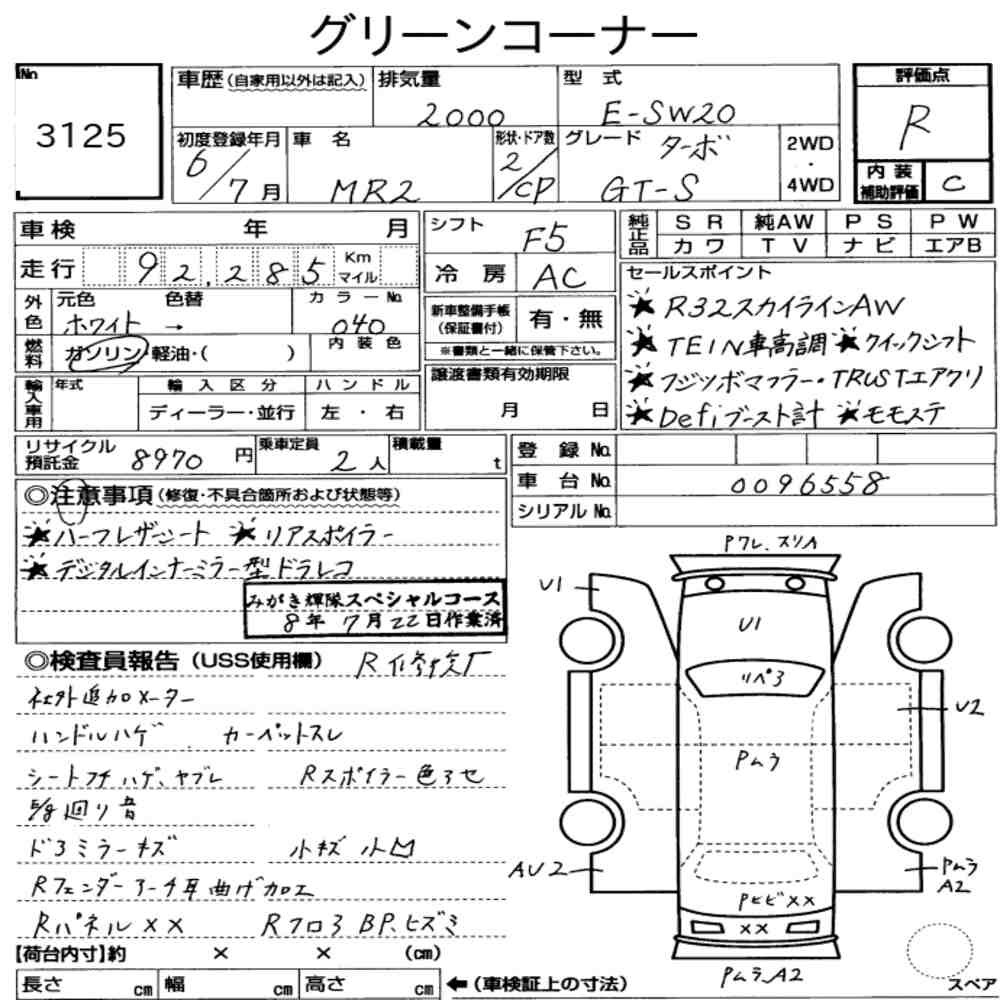 グリーンコーナー
No
3125
車歴(自家用以外は記入)
排気量
2000
型 式
E-SW20
評価点
R
初度登録年月
6/7月
車 名
MR2
形状・ドア数
2/CP
グレード
ターボ
GT-S
2WD
・
4WD
内装
補助評価
C
車検 年 月
シフト
F5
純正品
SR 純AW PS PW
カワ TV ナビ エアB
走行
92,285
Km
マイル
冷房
AC
セールスポイント
★R32スカイラインAW
★TEIN車高調 ★クイックシフト
★フジツボマフラー・TRUSTエアクリ
★Defiブースト計 ★モモステ
外色
元色 色替
ホワイト →
カラーNo.
040
新車整備手帳
(保証書付)
有・無
※書類と一緒に保管下さい。
燃料
ガソリン・軽油・( )
内装色
譲渡書類有効期限
月 日
輸入車用
年式
輸入区分
ディーラー・並行
ハンドル
左・右
リサイクル
預託金
8970円
乗車定員
2人
積載量
t
登録No.
車台No.
0096558
シリアルNo.
◎注意事項(修復・不具合箇所および状態等)
★ハーフレザーシート ★リアスポイラー
★デジタルインナーミラー型ドラレコ
みがき輝隊スペシャルコース
8年 7月22日作業済
◎検査員報告(USS使用欄)
R修検厂
社外追加メーター
ハンドルハゲ カーペットスレ
シートフチハゲ、ヤブレ Rスポイラー色アセ
5/8廻り音
ドアミラーキズ 小キズ小凹
Rフェンダーアーチ耳曲げ加工
Rパネル×× Rフロア BP、ヒズミ
Pワレ、スリイ
U1
U1
リペ3
U2
Pムラ
AU2
Pムラ
A2
Pヒビ××
××
Pムラ、A2
スペア
【荷台内寸】約 × × (cm)
長さ cm 幅 cm 高さ cm
←(車検証上の寸法)